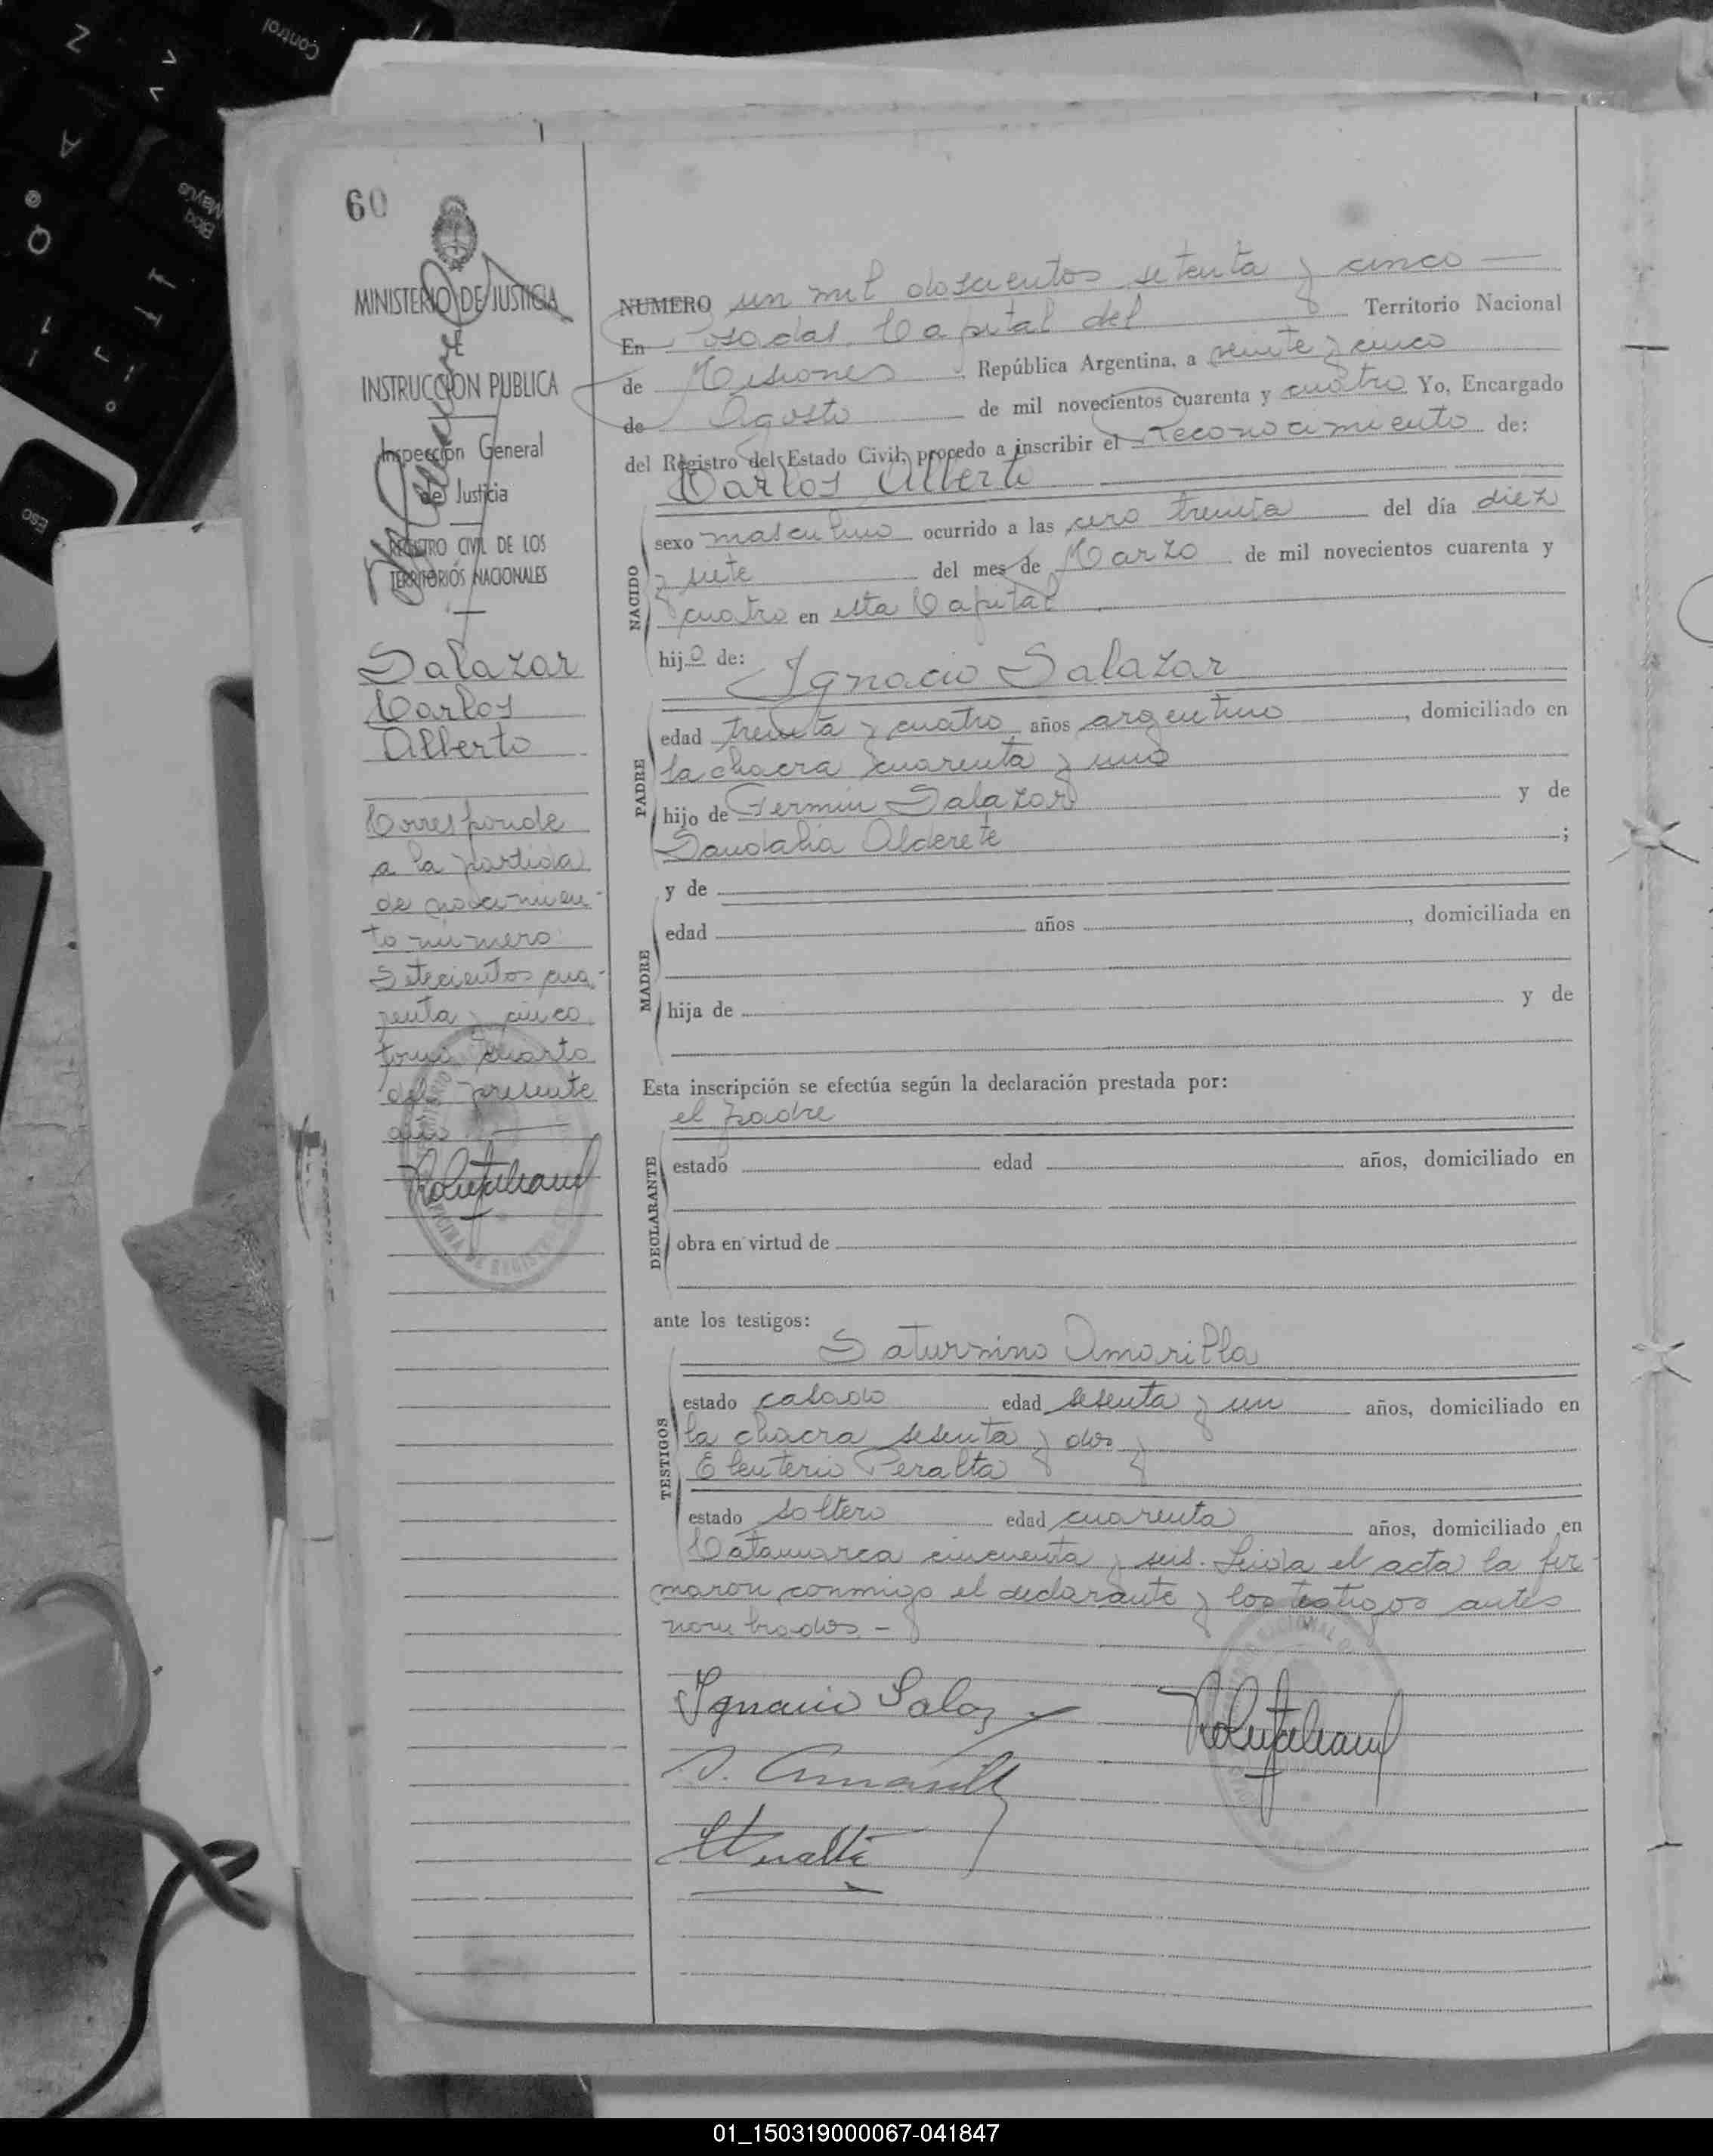 60
MINISTERIO DE JUSTICIA
E
INSTRUCCION PUBLICA
Inspección General
de Justicia
REGISTRO CIVIL DE LOS
TERRITORIOS NACIONALES
Salazar
Carlos
Alberto
Corresponde
a la partida
de nacimien-
to número
Setecientos cua-
renta y cinco
tomo cuarto
del presente
año
NUMERO un mil doscientos setenta y cinco —
En Posadas, Capital del Territorio Nacional
de Misiones República Argentina, a veinte y cinco
de Agosto de mil novecientos cuarenta y cuatro Yo, Encargado
del Registro del Estado Civil, procedo a inscribir el reconocimiento de:
Carlos Alberto
NACIDO
sexo masculino ocurrido a las cero treinta del día diez
y siete del mes de Marzo de mil novecientos cuarenta y
cuatro en esta Capital
hijo de: Ignacio Salazar
PADRE
edad treinta y cuatro años argentino, domiciliado en
la chacra cuarenta y uno
hijo de Fermin Salazar y de
Sandalia Alderete;
y de
MADRE
edad años , domiciliada en
hija de y de
Esta inscripción se efectúa según la declaración prestada por:
el padre
DECLARANTE
estado edad años, domiciliado en
obra en virtud de
ante los testigos:
Saturnino Amarilla
TESTIGOS
estado casado edad sesenta y un años, domiciliado en
la chacra sesenta y dos y
Eleuterio Peralta
estado soltero edad cuarenta años, domiciliado en
Catamarca cincuenta y seis. Leida el acta la fir-
maron conmigo el declarante y los testigos antes
nombrados. -
Ignacio Salazar
S. Amarilla
EPeralta
Control
Bloq
Mayús
Esc
Z
A
Q
@
1
01_150319000067-041847